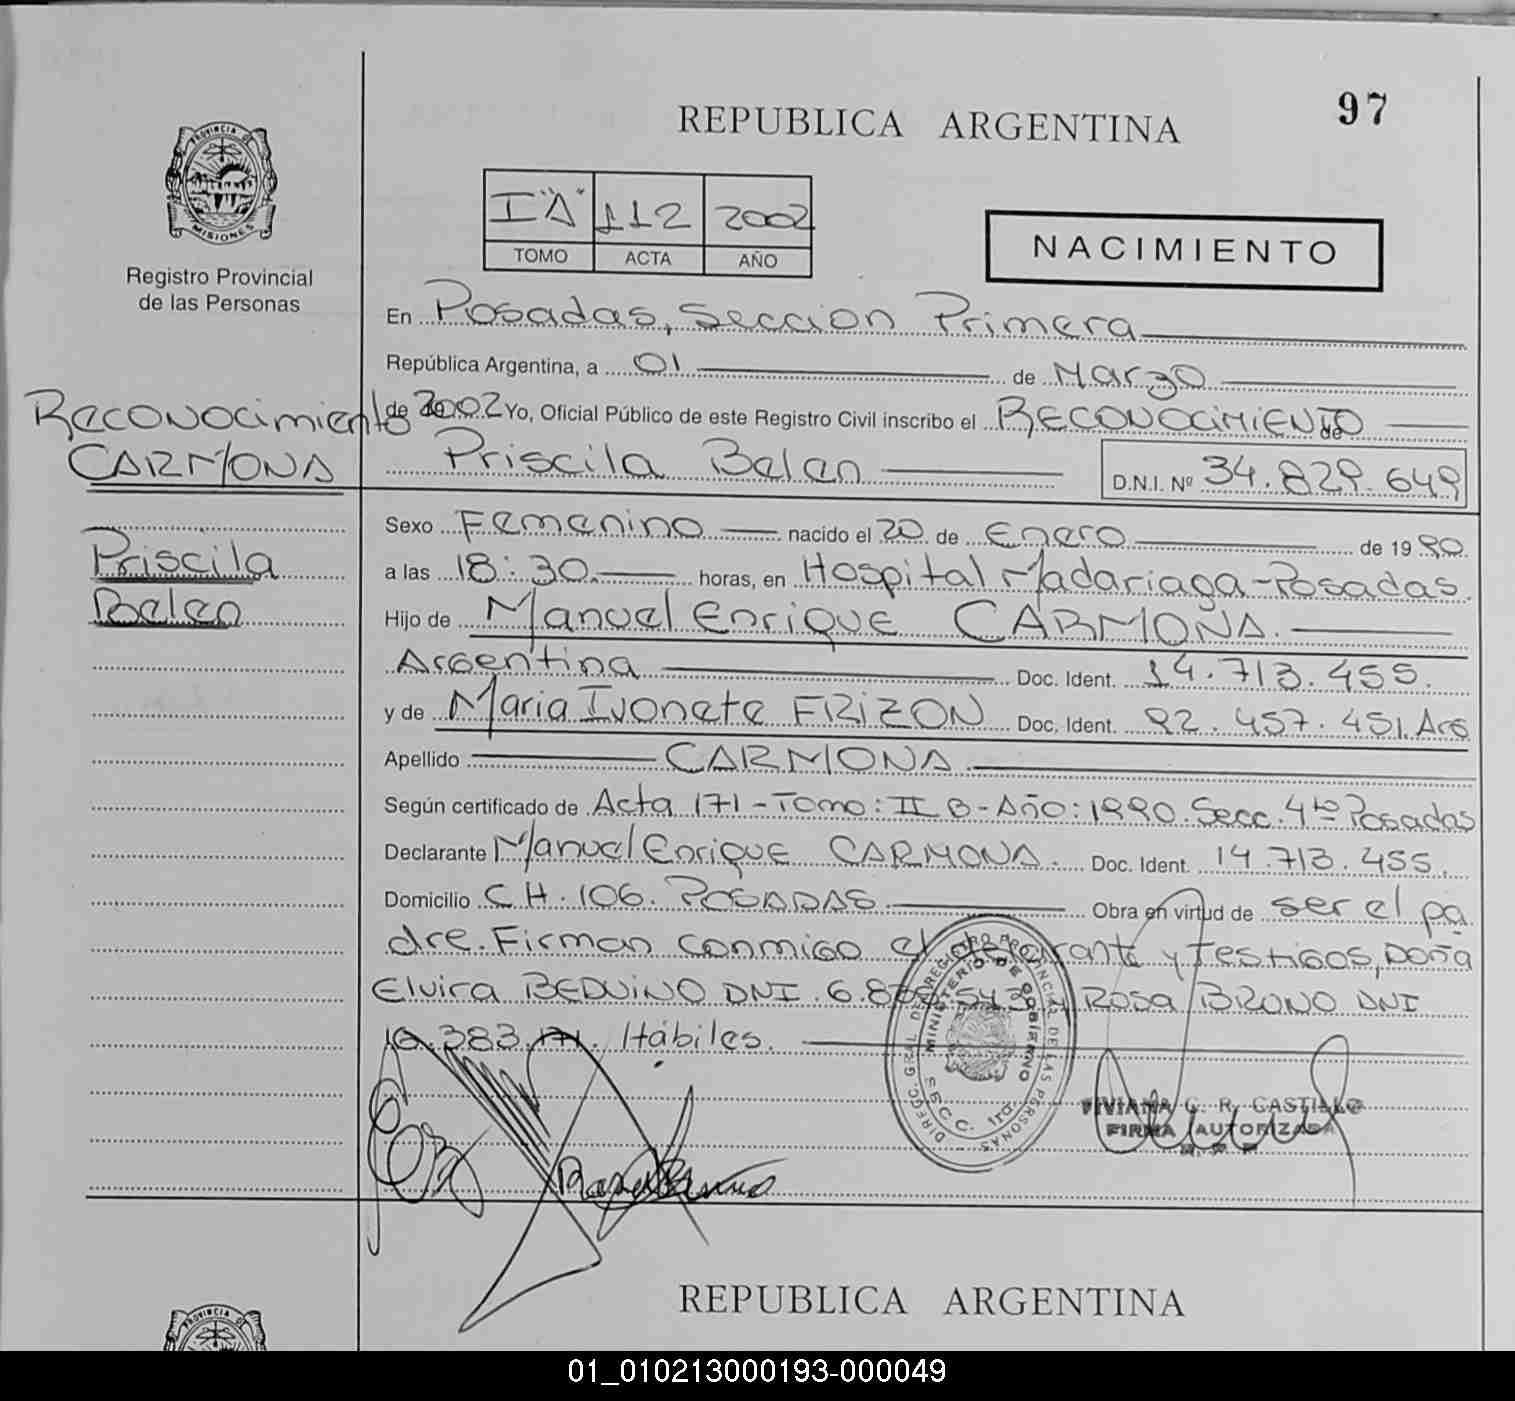 97
REPUBLICA ARGENTINA
PROVINCIA DE
MISIONES
Registro Provincial
de las Personas
I "A" 112 2002
TOMO ACTA AÑO
NACIMIENTO
En Posadas, Seccion Primera
República Argentina, a 01 de Marzo
de 2002 Yo, Oficial Público de este Registro Civil inscribo el RECONOCIMIENTO de
Priscila Belen D.N.I. Nº 34.829.649
Reconocimiento
CARMONA
Priscila
Belen
Sexo Femenino nacido el 20 de Enero de 1990
a las 18:30. horas, en Hospital Madariaga-Posadas.
Hijo de Manuel Enrique CARMONA.
Argentina Doc. Ident. 14.713.455.
y de Maria Ivonete FRIZON Doc. Ident. 92.457.451. Arg
Apellido CARMONA.
Según certificado de Acta 171-Tomo: II B-Año: 1990. Secc. 4ta Posadas
Declarante Manuel Enrique CARMONA. Doc. Ident. 14.713.455.
Domicilio C H. 106. POSADAS Obra en virtud de ser el pa
dre. Firman conmigo el declarante y Testigos, Doña
Elvira BEDUINO DNI. 6. Y Rosa BRUNO DNI
383. Hábiles.
DIREGC. GRAL. DEL REGISTRO PROVINCIAL DE LAS PERSONAS
MINISTERIO DE GOBIERNO
Rosa Bruno
VIVIANA C. R. CASTILLO
FIRMA AUTORIZADA
REPUBLICA ARGENTINA
PROVINCIA DE
01_010213000193-000049